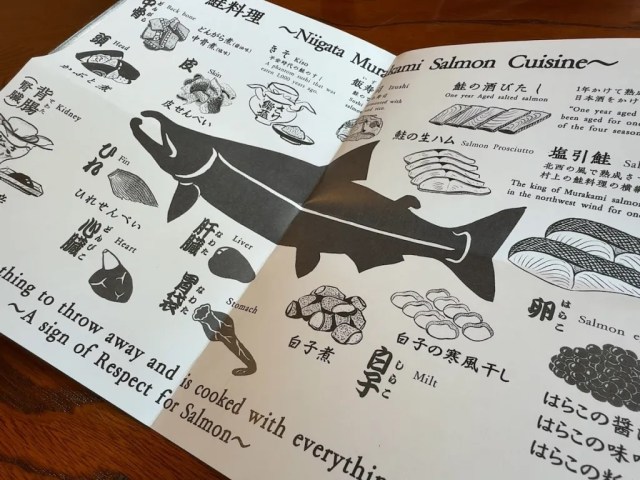 鮭料理
~Niigata Murakami Salmon Cuisine~
中骨
Back bone
どんがら煮(醤油味)
中骨煮(味噌)
頭
Head
かぶと煮
皮
Skin
皮せんべい
きそ Kiso
飯寿
Izushi
背腸
Kidney
ひれ
Fin
ひれせんべい
心臓
どんびこ
Heart
肝臓
なわた
Liver
胃袋
Stomach
鮭の酒びたし
One year Aged salted salmon
1年かけて熟成
日本酒をかけ
"One year aged
been aged for one
of the four seasons
鮭の生ハム Salmon Prosciutto
塩引鮭
北西の風で熟成さ
村上の鮭料理の横
The king of Murakami salmon
in the northwest wind for one
白子煮
白子の寒風干し
白子
しらこ
Milt
卵
はらこ
Salmon e
はらこの醤
はらこの味
はらこの
thing to throw away and is cooked with everything
~A sign of Respect for Salmon~